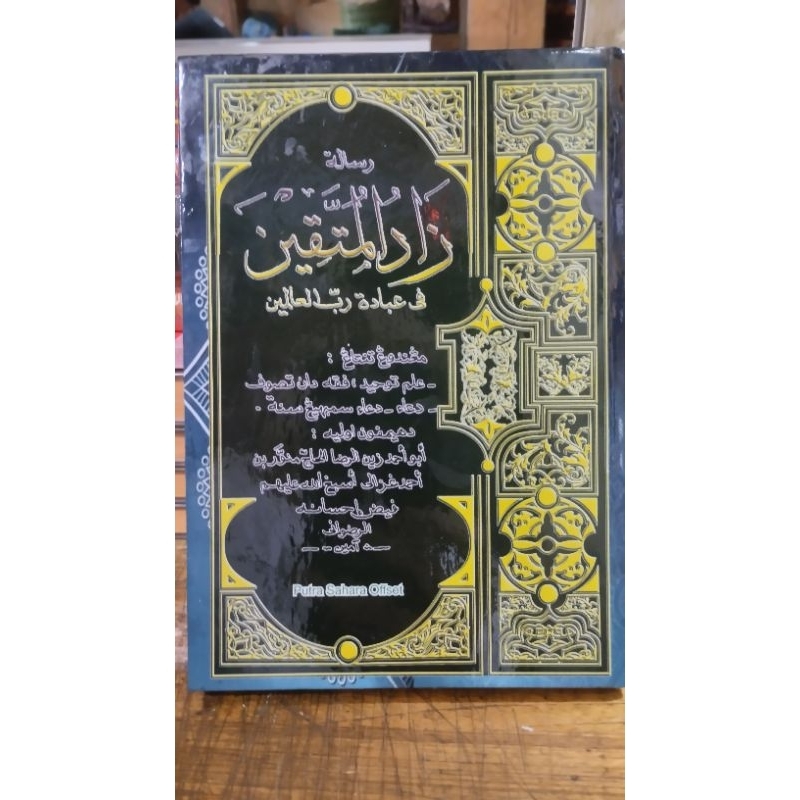 رسالة
زَادُ الْمُتَّقِيْنَ
فى عبادة ربّ العالمين
مڠندوڠ تنتاڠ :
- علم توحيد، فقه دان تصوف
- دعاء - دعاء سمبهيڠ سنة .
دهيمفون اوليه :
أبو أحمد زين الرضا الحاج منوّر بن
أحمد غزالى أسبغ الله عليهم
فيض إحسانه
الرضوانى
- آمين -
Putra Sahara Offset